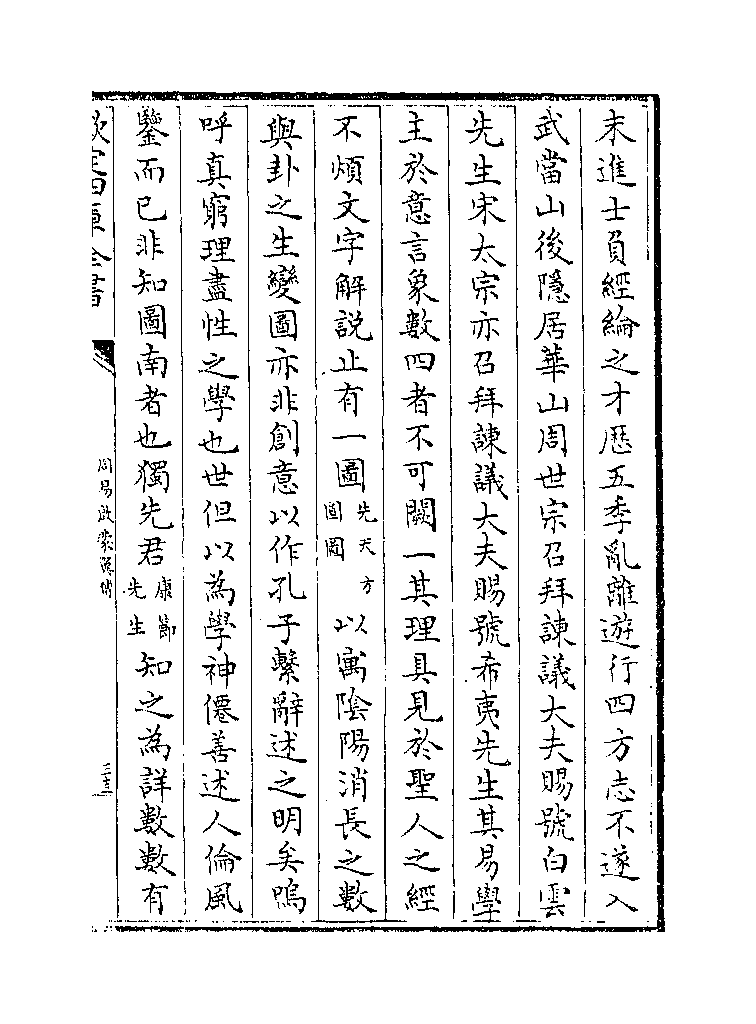 末進士負經綸之才歴五季亂離遊行四方志不遂入
武當山後隱居華山周世宗召拜諫議大夫賜號白雲
先生宋太宗亦召拜諫議大夫賜號希夷先生其易學
主於意言象數四者不可闕一其理具見於聖人之經
不煩文字解説止有一圖先天方圓圖以寓陰陽消長之數
與卦之生變圖亦非創意以作孔子繫辭述之明矣嗚
呼真窮理盡性之學也世但以為學神僊善述人倫風
鑒而已非知圖南者也獨先君康節先生知之為詳數數有
欽定四庫全書
周易啟蒙翼傳